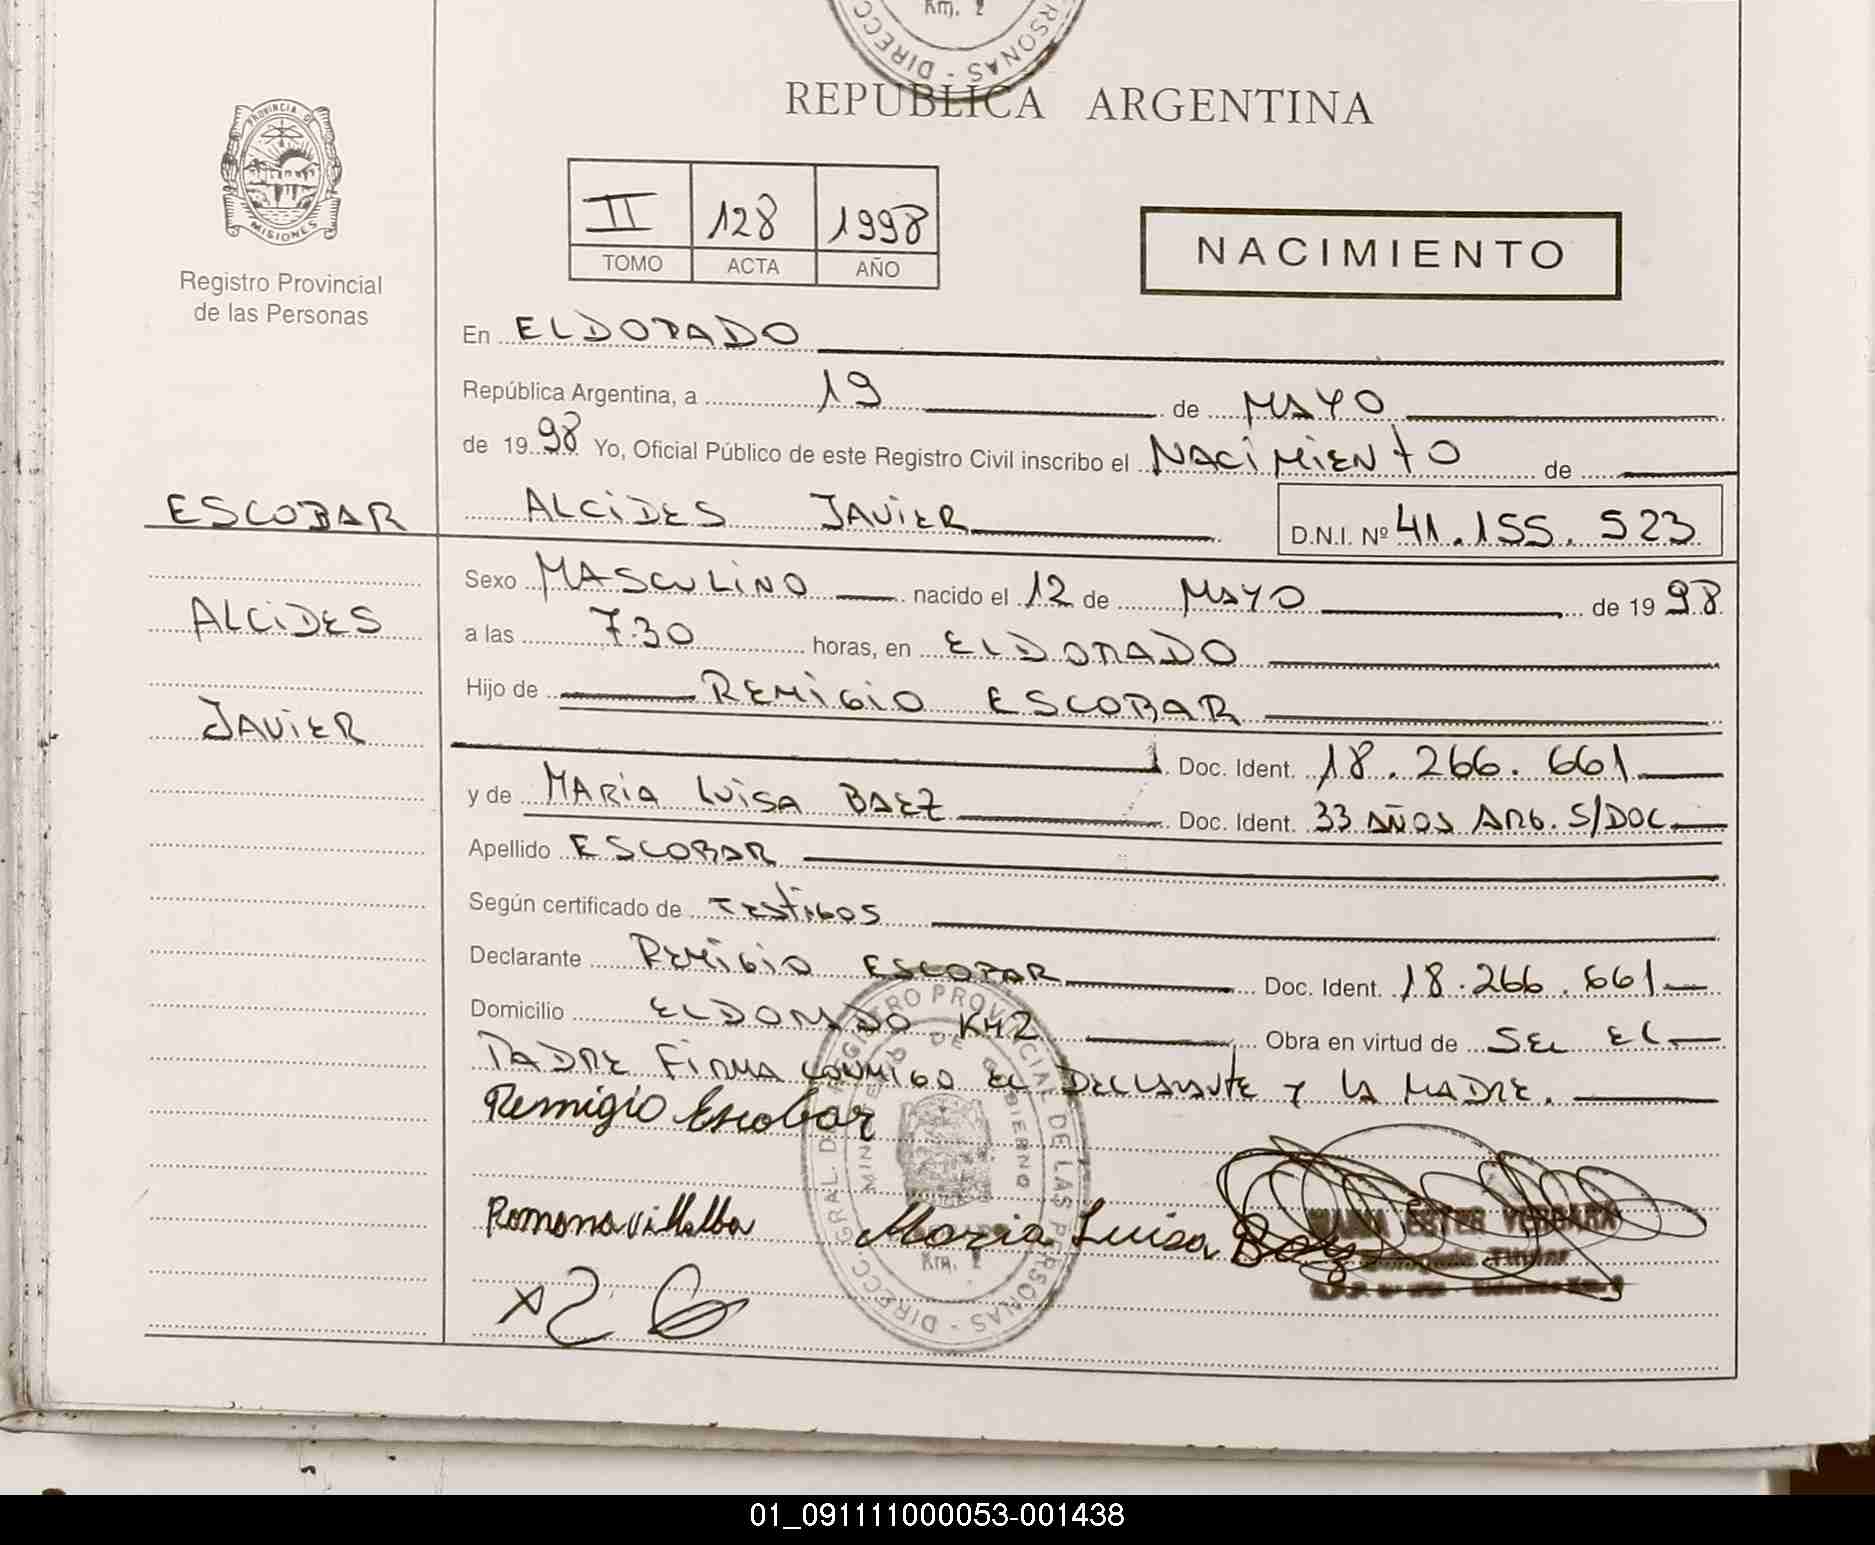 Km. 2
DIRECC
PERSONAS
REPUBLICA ARGENTINA
PROVINCIA DE
MISIONES
Registro Provincial
de las Personas
II 128 1998
TOMO ACTA AÑO
NACIMIENTO
En ELDORADO
República Argentina, a 19 de MAYO
de 19 98 Yo, Oficial Público de este Registro Civil inscribo el NACIMIENTO de
ESCOBAR ALCIDES JAVIER D.N.I. Nº 41.155.523
Sexo MASCULINO nacido el 12 de MAYO de 19 98
ALCIDES
a las 7.30 horas, en ELDORADO
Hijo de REMIGIO ESCOBAR
JAVIER
Doc. Ident. 18.266.661
y de MARIA LUISA BAEZ Doc. Ident. 33 AÑOS ARG. S/DOC
Apellido ESCOBAR
Según certificado de TESTIGOS
Declarante REMIGIO ESCOBAR Doc. Ident. 18.266.661
Domicilio ELDORADO KM2 Obra en virtud de SER EL
PADRE FIRMA CONMIGO EL DECLARANTE Y LA MADRE.
Remigio Escobar
Romona villalba Maria Luisa Baez
DIRECC GRAL. DE REGISTRO PROVINCIAL DE LAS PERSONAS
MINISTERIO DE GOBIERNO
Km. 2
MARIA ESTER VERGARA
Delegada Titular
01_091111000053-001438